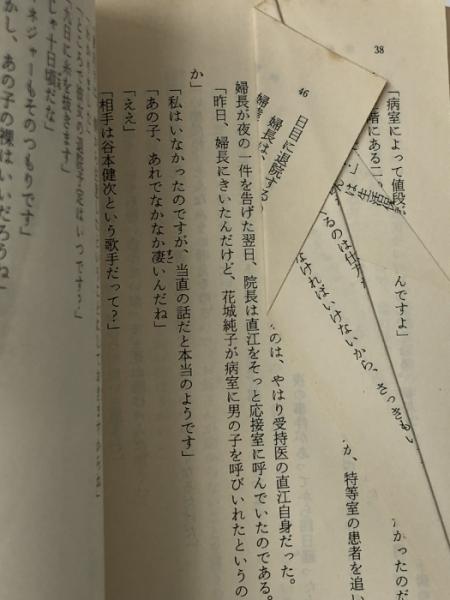 38
「病室によって値段
階にある二
は生活保
んですよ」
るのは仕方
なければいけないから、さっきもい
かったのだ
か、特等室の患者を追い
46
日目に退院する
婦長は、
のは、やはり受持医の直江自身だった。
婦長が夜の一件を告げた翌日、院長は直江をそっと応接室に呼んでいたのである。
「昨日、婦長にきいたんだけど、花城純子が病室に男の子を呼びいれたというの
か」
「私はいなかったのですが、当直の話だと本当のようです」
「あの子、あれでなかなか凄いんだね」
すご
「ええ」
「相手は谷本健次という歌手だって？」
「ところで彼女の退院予定はいつです？」
「九日に糸を抜きます」
じゃ十日頃だな」
ネジャーもそのつもりです」
かし、あの子の裸はいいだろうね」